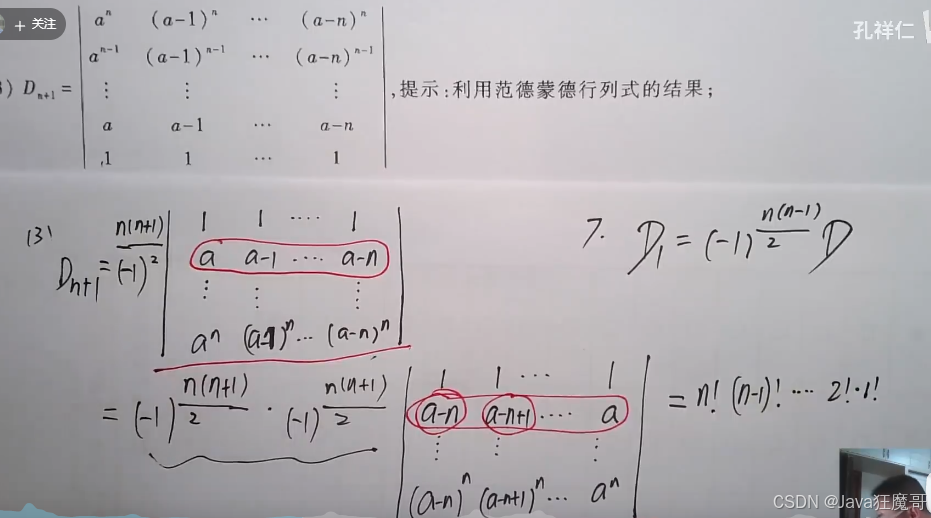 + 关注
孔祥仁
) D_{n+1} = | a^n (a-1)^n ⋯ (a-n)^n |
| a^{n-1} (a-1)^{n-1} ⋯ (a-n)^{n-1} |
| ⋮ ⋮ ⋮ | ,提示:利用范德蒙德行列式的结果;
| a a-1 ⋯ a-n |
| 1 1 ⋯ 1 |
(3) D_{n+1} = (-1)^{n(n+1)/2} | 1 1 ⋯ 1 |
| a a-1 ⋯ a-n |
| ⋮ ⋮ ⋮ |
| a^n (a-1)^n ⋯ (a-n)^n |
7. D_1 = (-1)^{n(n-1)/2} D
= (-1)^{n(n+1)/2} · (-1)^{n(n+1)/2} | 1 1 ⋯ 1 |
| a-n a-n+1 ⋯ a |
| ⋮ ⋮ ⋮ |
| (a-n)^n (a-n+1)^n ⋯ a^n |
= n! (n-1)! ⋯ 2! · 1!
CSDN @Java狂魔哥